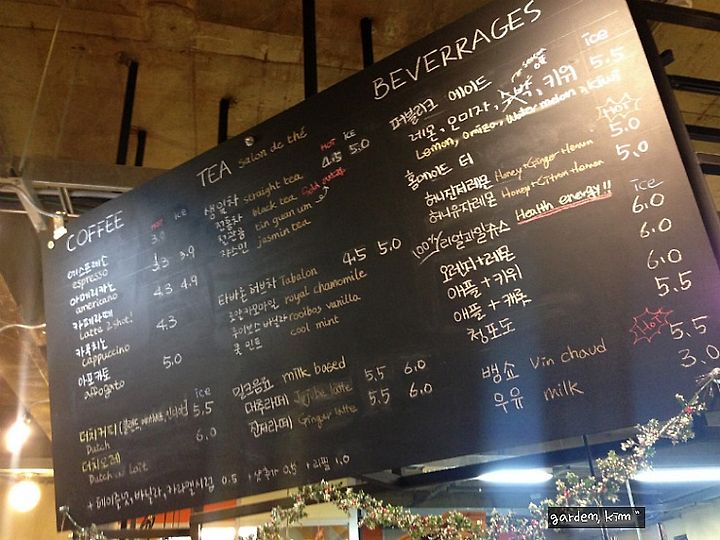 COFFEE
HOT ICE
에스프레소 3.0
espresso
아메리카노 3.3 3.9
americano
카페라떼 4.3 4.9
Latte 2shot!
카푸치노 4.3
cappuccino
아포카토 5.0
affogato
ice
더치커피 5.5
Dutch
더치오레 6.0
Dutch au lait
+ 헤이즐넛, 바닐라, 카라멜시럽 0.5 + 샷추가 0.5 + 리필 1.0
TEA salon de thé
HOT ICE
생잎차 straight tea 4.5 5.0
전통차 black tea
천관음 tin guan um
쟈스민 jasmin tea
타바론 허브차 Tabalon 4.5 5.0
로얄카모마일 royal chamomile
루이보스 바닐라 rooibos vanilla
쿨 민트 cool mint
밀크음료 milk based
대추라떼 Jujube latte 5.5 6.0
진저라떼 Ginger latte 5.5 6.0
BEVERRAGES
퍼블리크 에이드 ice
레몬, 오미자, 키위 5.5
Lemon, omiza, watermelon, kiwi
홈메이드 티 HOT
허니진저레몬 Honey+Ginger+Lemon 5.0
허니유자레몬 Honey+Citron+Lemon 5.0
100% 리얼과일쥬스 Health energy!! ice
오렌지+레몬 6.0
애플+키위 6.0
애플+캐롯 6.0
청포도 5.5
HOT
뱅쇼 Vin chaud 5.5
우유 milk 3.0
gardem, kimm"